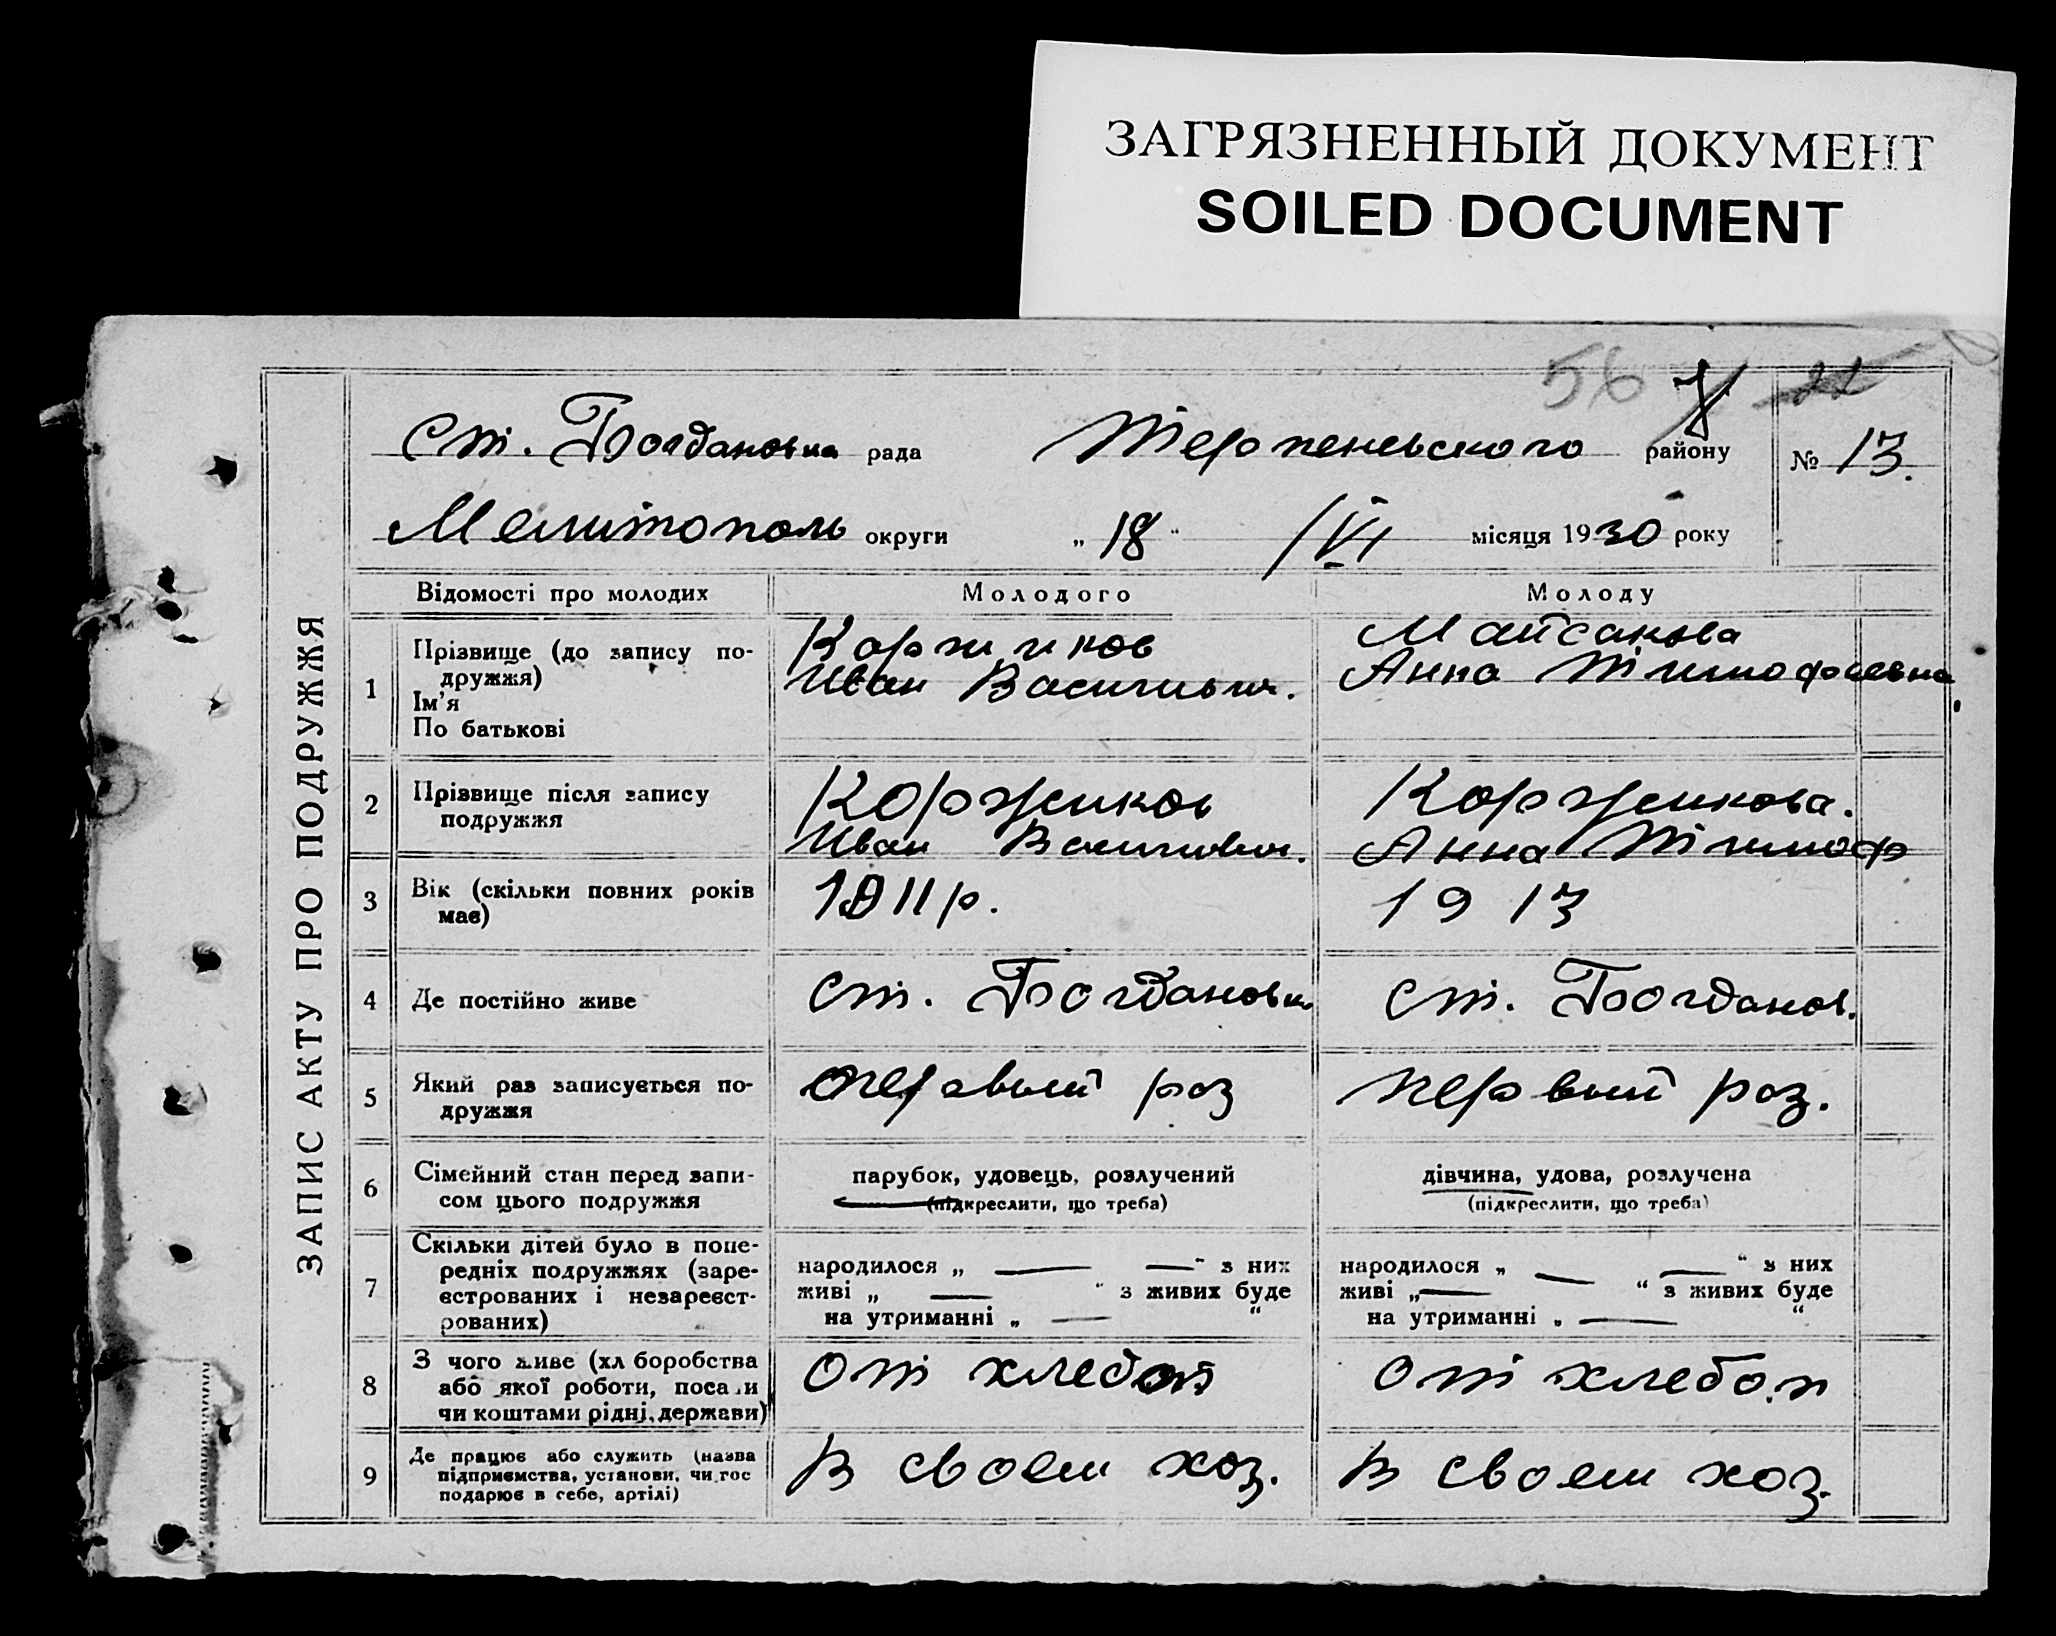 ЗАГРЯЗНЕННЫЙ ДОКУМЕНТ
SOILED DOCUMENT
56
ст. Богдановка рада Терпеньского району № 13.
Мелитополь округи „ 18 “ /VI місяця 1930 року
ЗАПИС АКТУ ПРО ПОДРУЖЖЯ
Відомості про молодих Молодого Молоду
1 Прізвище (до запису по-
дружжя)
Ім'я
По батькові
Коржиков
Иван Васильич.
Майсакова
Анна Тимофеевна.
2 Прізвище після запису
подружжя
Коржиков
Иван Василович.
Коржикова.
Анна Тимоф
3 Вік (скільки повних років
має)
1911 р.
1913
4 Де постійно живе
ст. Богдановка
ст. Богданов.
5 Який раз записується по-
дружжя
первый раз
первый раз.
6 Сімейний стан перед запи-
сом цього подружжя
парубок, удовець, розлучений
(підкреслити, що треба)
дівчина, удова, розлучена
(підкреслити, що треба)
7 Скільки дітей було в попе-
редніх подружжях (заре-
єстрованих і незареєст-
рованих)
народилося „ — — “ з них
живі „ — “ з живих буде
на утриманні „ — “
народилося „ — — “ з них
живі „ — “ з живих буде
на утриманні „ — “
8 З чого живе (хліборобства
або якої роботи, посади
чи коштами рідні, держави)
От хлебоп
От хлебоп
9 Де працює або служить (назва
підприємства, установи, чи гос
подарює в себе, артілі)
В своем хоз.
В своем хоз.